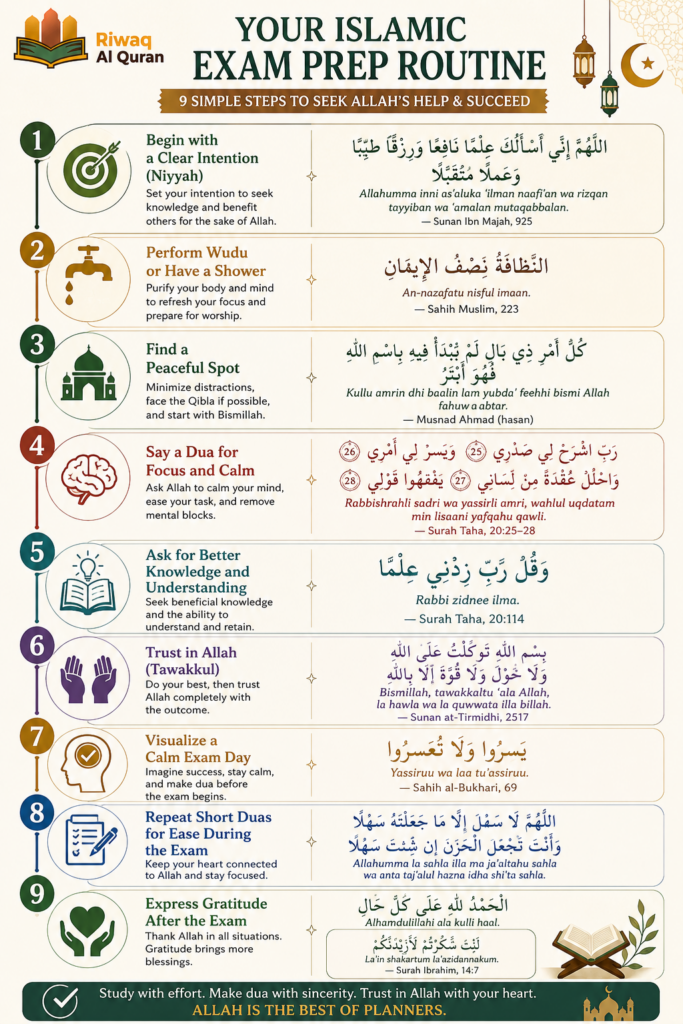 Riwaq
Al Quran
YOUR ISLAMIC
EXAM PREP ROUTINE
9 SIMPLE STEPS TO SEEK ALLAH'S HELP & SUCCEED
1
Begin with
a Clear Intention
(Niyyah)
Set your intention to seek
knowledge and benefit
others for the sake of Allah.
اللَّهُمَّ إِنِّي أَسْأَلُكَ عِلْمًا نَافِعًا وَرِزْقًا طَيِّبًا
وَعَمَلًا مُتَقَبَّلًا
Allahumma inni as'aluka 'ilman naafi'an wa rizqan
tayyiban wa 'amalan mutaqabbalan.
— Sunan Ibn Majah, 925
2
Perform Wudu
or Have a Shower
Purify your body and mind
to refresh your focus and
prepare for worship.
النَّظَافَةُ نِصْفُ الإِيمَانِ
An-nazafatu nisful imaan.
— Sahih Muslim, 223
3
Find a
Peaceful Spot
Minimize distractions,
face the Qibla if possible,
and start with Bismillah.
كُلُّ أَمْرِ ذِي بَالٍ لَمْ يُبْدَأْ فِيهِ بِاسْمِ اللهِ
فَهُوَ أَبْتَرُ
Kullu amrin dhi baalin lam yubda' feehhi bismi Allah
fahuwa abtar.
— Musnad Ahmad (hasan)
4
Say a Dua for
Focus and Calm
Ask Allah to calm your mind,
ease your task, and remove
mental blocks.
رَبِّ اشْرَحْ لِي صَدْرِي ٢٥ وَيَسِّرْ لِي أَمْرِي ٢٦
وَاحْلُلْ عُقْدَةً مِنْ لِسَانِي ٢٧ يَفْقَهُوا قَوْلِي ٢٨
Rabbishrahli sadri wa yassirli amri, wahlul uqdatam
min lisaani yafqahu qawli.
— Surah Taha, 20:25–28
5
Ask for Better
Knowledge and
Understanding
Seek beneficial knowledge
and the ability to
understand and retain.
وَقُلْ رَبِّ زِدْنِي عِلْمًا
Rabbi zidnee ilma.
— Surah Taha, 20:114
6
Trust in Allah
(Tawakkul)
Do your best, then trust
Allah completely with
the outcome.
بِسْمِ اللهِ تَوَكَّلْتُ عَلَى اللهِ
وَلَا حَوْلَ وَلَا قُوَّةَ إِلَّا بِاللهِ
Bismillah, tawakkaltu 'ala Allah,
la hawla wa la quwwata illa billah.
— Sunan at-Tirmidhi, 2517
7
Visualize a
Calm Exam Day
Imagine success, stay calm,
and make dua before
the exam begins.
يَسِّرُوا وَلَا تُعَسِّرُوا
Yassiruu wa laa tu'assiruu.
— Sahih al-Bukhari, 69
8
Repeat Short Duas
for Ease During
the Exam
Keep your heart connected
to Allah and stay focused.
اللَّهُمَّ لَا سَهْلَ إِلَّا مَا جَعَلْتَهُ سَهْلًا
وَأَنْتَ تَجْعَلُ الْحَزْنَ إِن شِئْتَ سَهْلًا
Allahumma la sahla illa ma ja'altahu sahla
wa anta taj'alul hazna idha shi'ta sahla.
9
Express Gratitude
After the Exam
Thank Allah in all situations.
Gratitude brings more
blessings.
الْحَمْدُ للهِ عَلَى كُلِّ حَالٍ
Alhamdulillahi ala kulli haal.
لَئِنْ شَكَرْتُمْ لَأَزِيدَنَّكُمْ
La'in shakartum la'azidannakum.
— Surah Ibrahim, 14:7
Study with effort. Make dua with sincerity. Trust in Allah with your heart.
ALLAH IS THE BEST OF PLANNERS.